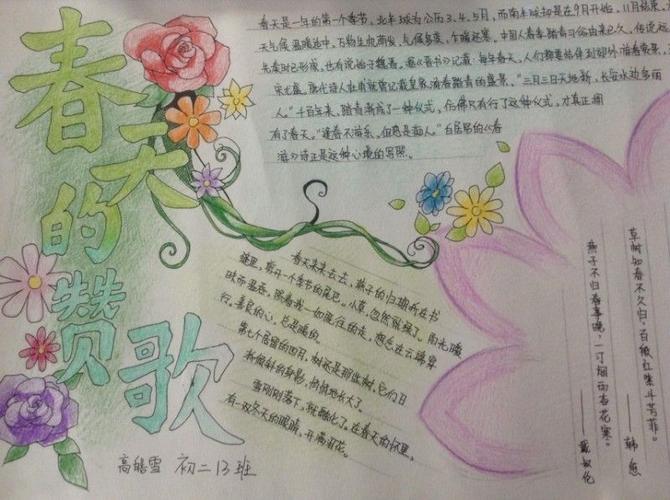 春天的赞歌
春天是一年的第一个季节,北半球为公历3、4、5月,而南半球却是在9月开始,11月结束,
天气候温暖适中,万物生机萌发,气候多变,乍暖还寒。中国人春季踏青习俗由来已久,传说远
先秦时已形成,也有说始于魏晋。据《晋书》记载:每年春天,人们都要结伴到郊外游春赏景,
宋尤盛。唐代诗人杜甫就曾记载皇家游春踏青的盛景。“三月三日天地新,长安水边多丽
人。”千百年来,踏青渐成了一种仪式,仿佛只有行了这种仪式,才真正拥
有了春天。“逢春不游乐,但恐是痴人。”白居易的《春
游》诗正是这种心境的写照。
春天来来去去,燕子的归期所在书
缝里,剪开一个季节的尾记。小草,忽然就绿了。阳光暖
味而温柔。跟着我一如既往的走,想念在云端舞
行。善良的心,总是暖的。
第七个居留的四月,树还是那些树,它们日
渐倾斜的身影,悄悄地长大了。
雪刚刚落下,就融化了。在春天的怀里,
有一双冬天的眼睛,开满泪花。
草树知春不久归,百般红紫斗芳菲。
——韩愈
燕子不归春事晚,一汀烟雨杏花寒。
——戴叔伦
高皓雪 初二13班